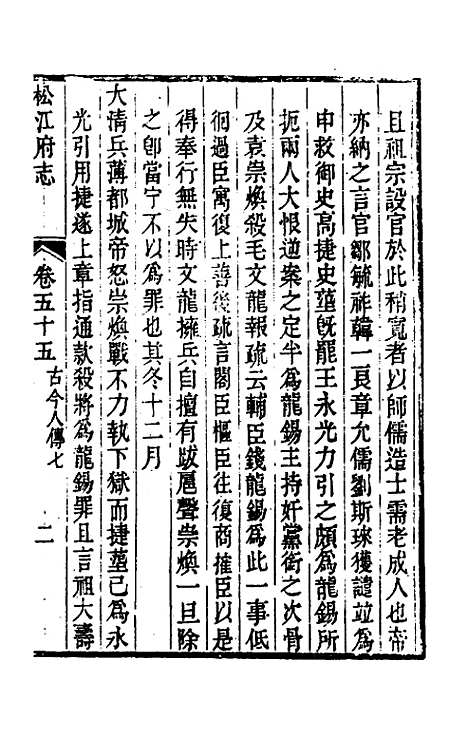 且祖宗設官於此稍寬者以師儒造士需老成人也帝
亦納之言官鄒毓祚韓一良章允儒劉斯琜獲譴竝爲
申救御史高捷史𡎊旣罷王永光力引之頗爲龍錫所
扼兩人大恨逆案之定半爲龍錫主持奸黨銜之次骨
及袁崇煥殺毛文龍報疏云輔臣錢龍錫爲此一事低
徊過臣寓復上善後疏言閣臣樞臣往復商搉臣以是
得奉行無失時文龍擁兵自擅有跋扈聲崇煥一旦除
之卽當宁不以爲罪也其冬十二月
大清兵薄都城帝怒崇煥戰不力執下獄而捷𡎊已爲永
光引用捷遂上章指通款殺將爲龍錫罪且言祖大壽
松江府志
卷五十五
古今人傳七
二